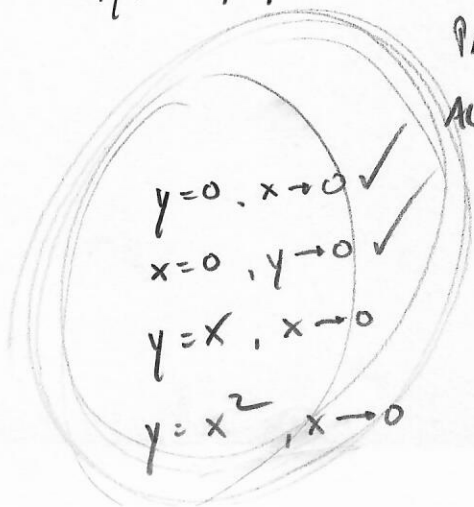 y=0, x→0 ✓
x=0, y→0 ✓
y=x, x→0
y=x², x→0